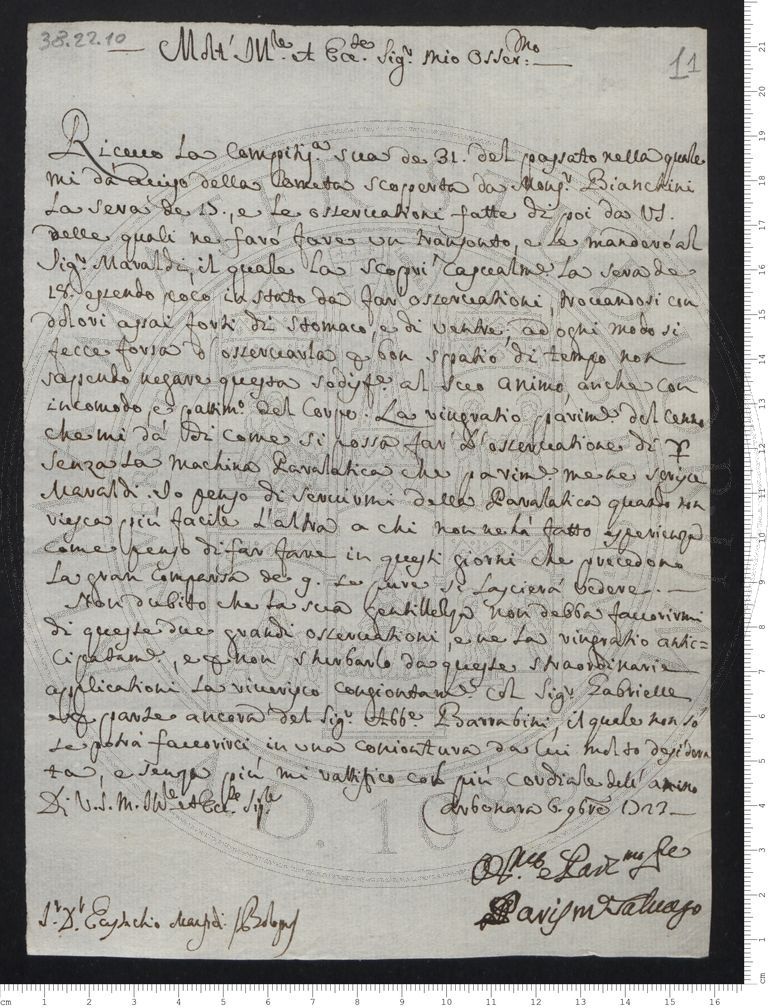 38.22.10
11
Molt' Ill.re et Ecc.te Sig.r mio Osser.mo
Riceuo la Compitis.a sua de 31. del passato nella quale
mi dà auiso della Cometa scoperta da Mons.r Bianchini
la sera de 17., e le osseruationi fatte di poi da VS.
delle quali ne farò fare un transonto, e le manderò al
Sig.r Maraldi, il quale la scoprì Casualm.e la sera de
18. essendo poco in stato da far osseruationi, trouandosi con
dolori assai forti di stomaco, e di ventre: ad ogni modo si
fecce forsa d'osseruarla p bon spatio di tempo non
sapendo negare questa sodisf.e al suo animo, anche con
incomodo, e patim.o del Corpo. La ringratio parim.e del Cenno
che mi dà di come si possa far l'osseruatione di ☿
senza la machina Paralatica che parim.e me ne scrisse
Maraldi. Io penso di seruirmi della Paralatica quando non
riesca più facile l'altra a chi non ne hà fatto esperienza
come penso di far fare in questi giorni che precedono
la gran Comparsa de 9. se pure si lascierà vedere.
Non dubito che la sua gentillezza non debba fauorirmi
di queste due grandi osseruationi, e ne la ringratio antic=
cipatam.e, e p non sturbarlo da queste straordinarie
applicationi la riuerisco congiontam.e col Sig.r Gabrielle
e p parte ancora del Sig.r Abb.e Barrabini, il quale non sò
se potrà fauorirci in una coniontura da lui molto desidera
ta, e senza più mi rattifico con più cordiale dell'animo
Di V.S. M. Ill.re et Ecc.te Sig.re
Carbonara 6. 9bre 1723
Paris M.a Saluago
S.r D.r Eustachio Manfredi Bologna